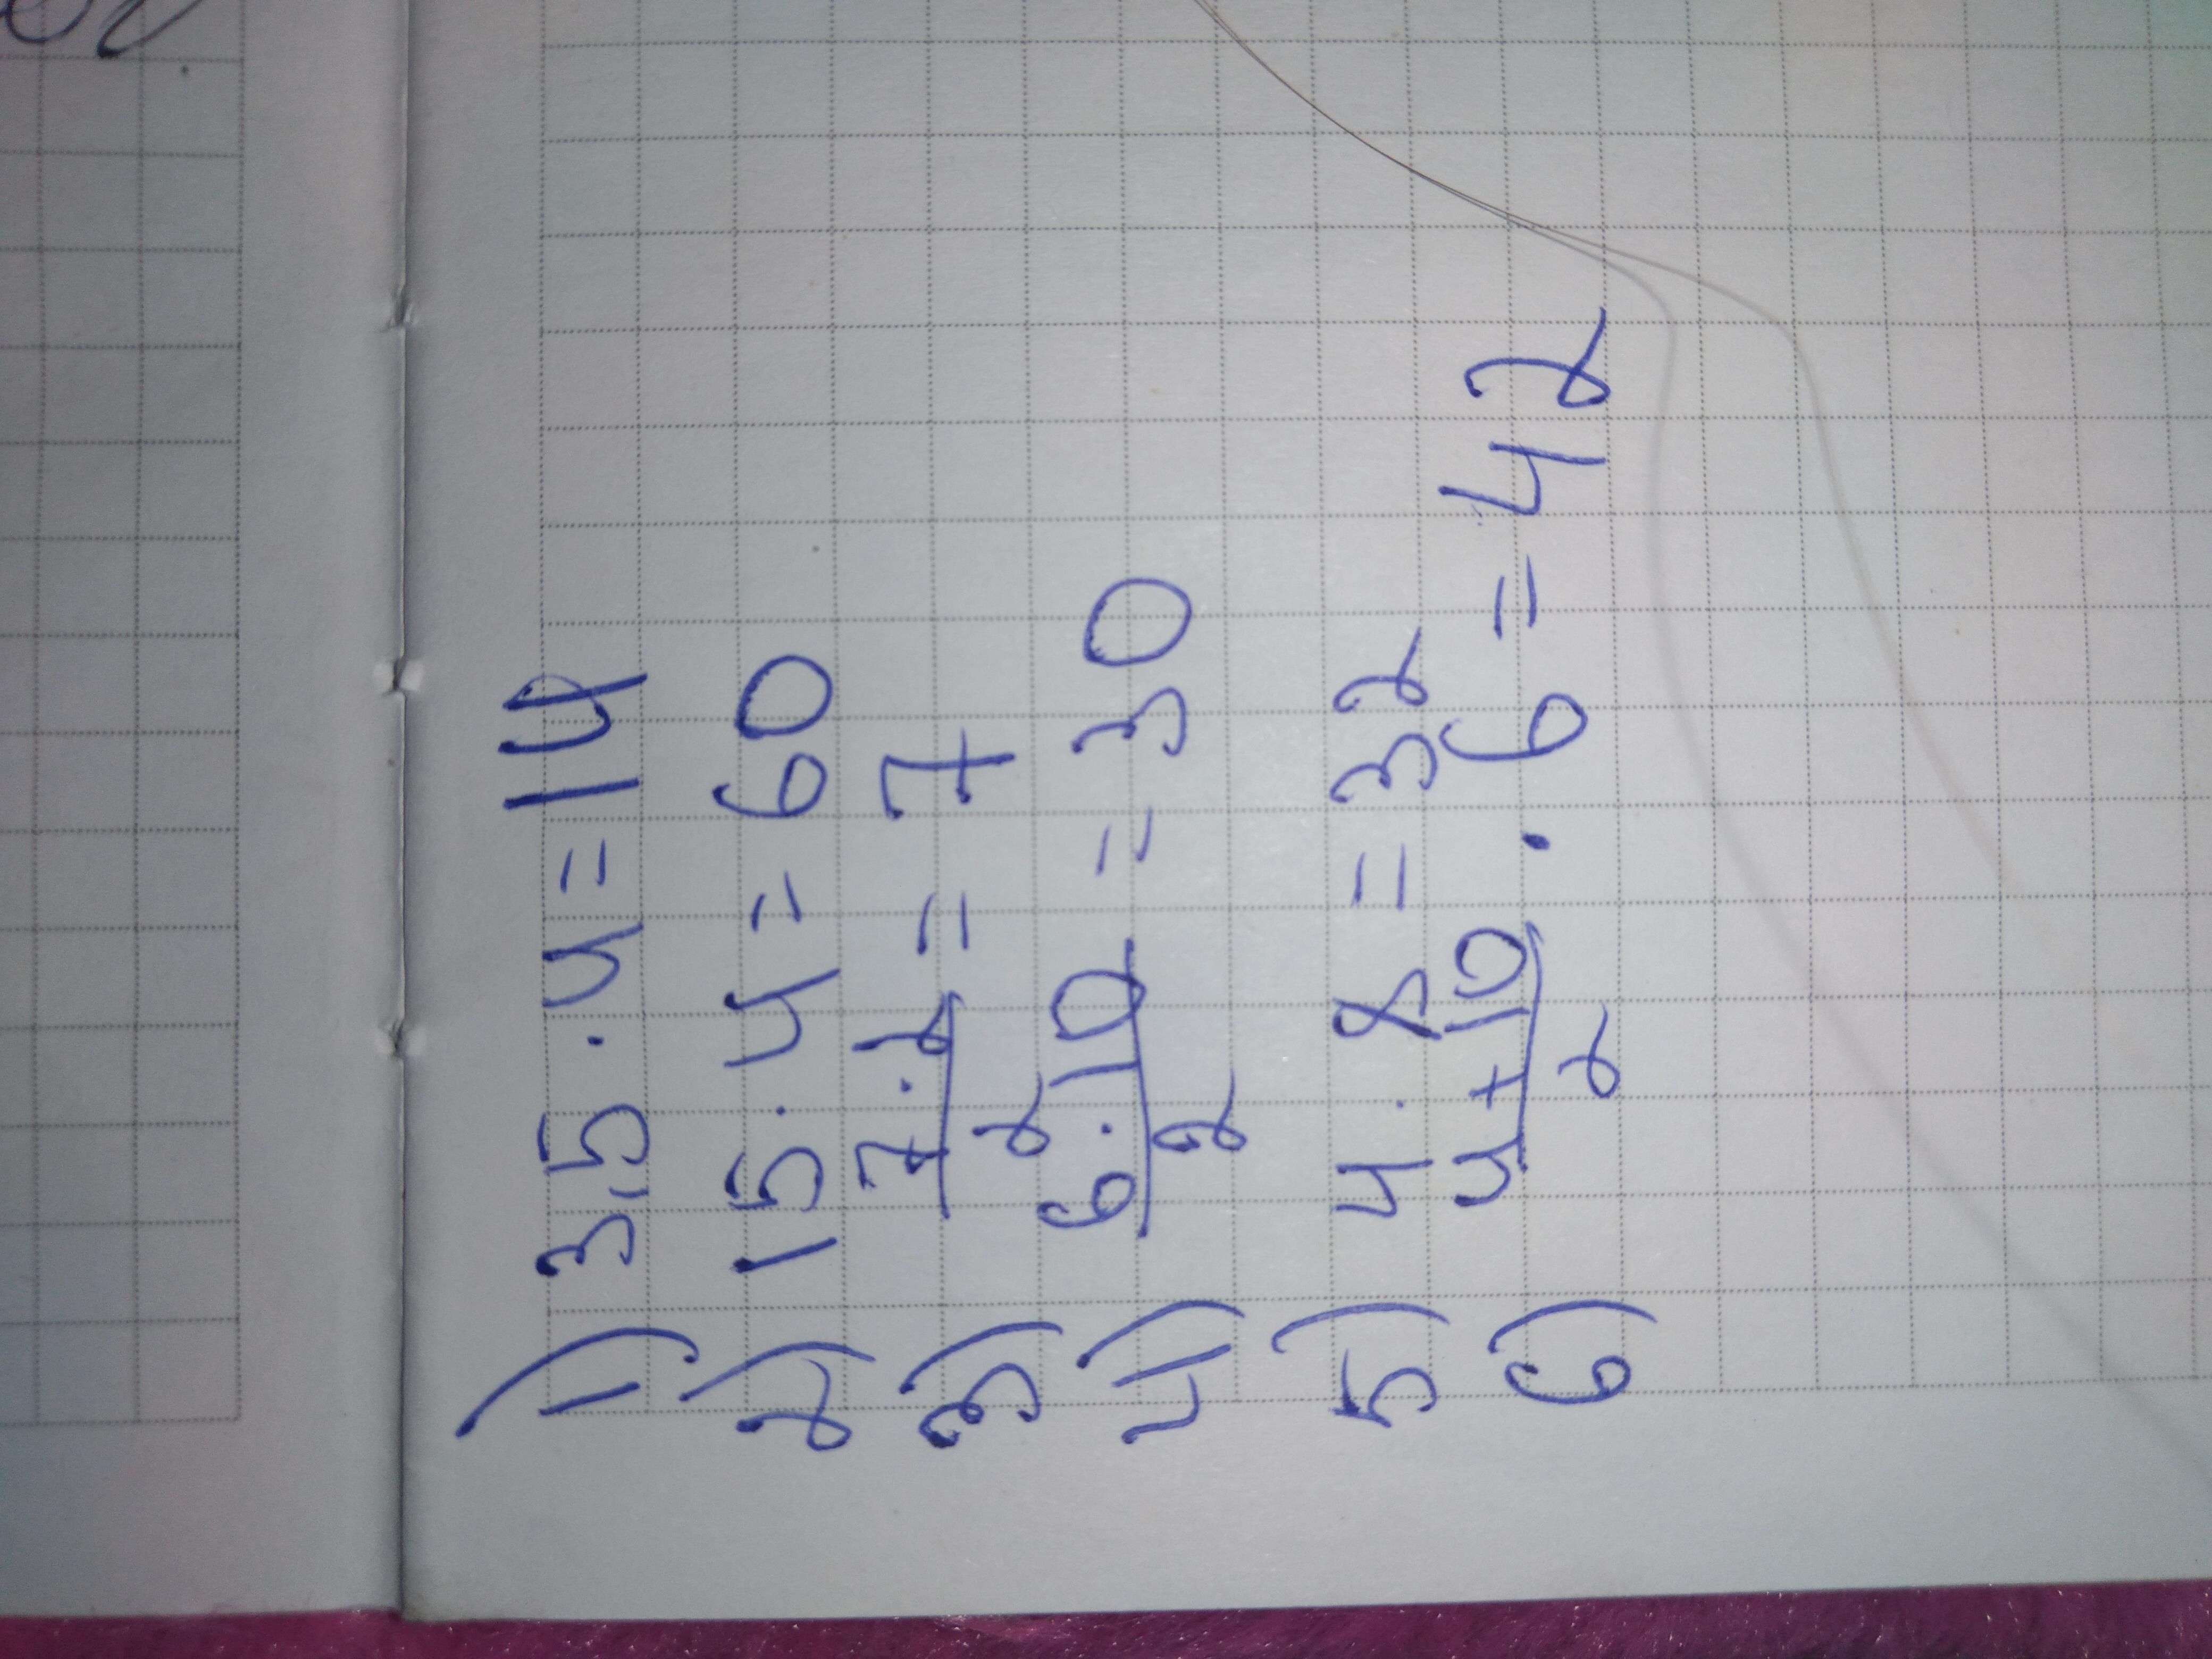 1) 3,5 · 4 = 14
2) 15 · 4 = 60
3) 7 · 2 / 2 = 7
4) 6 · 10 / 2 = 30
5) 4 · 8 = 32
6) 4 + 10 / 2 · 6 = 42